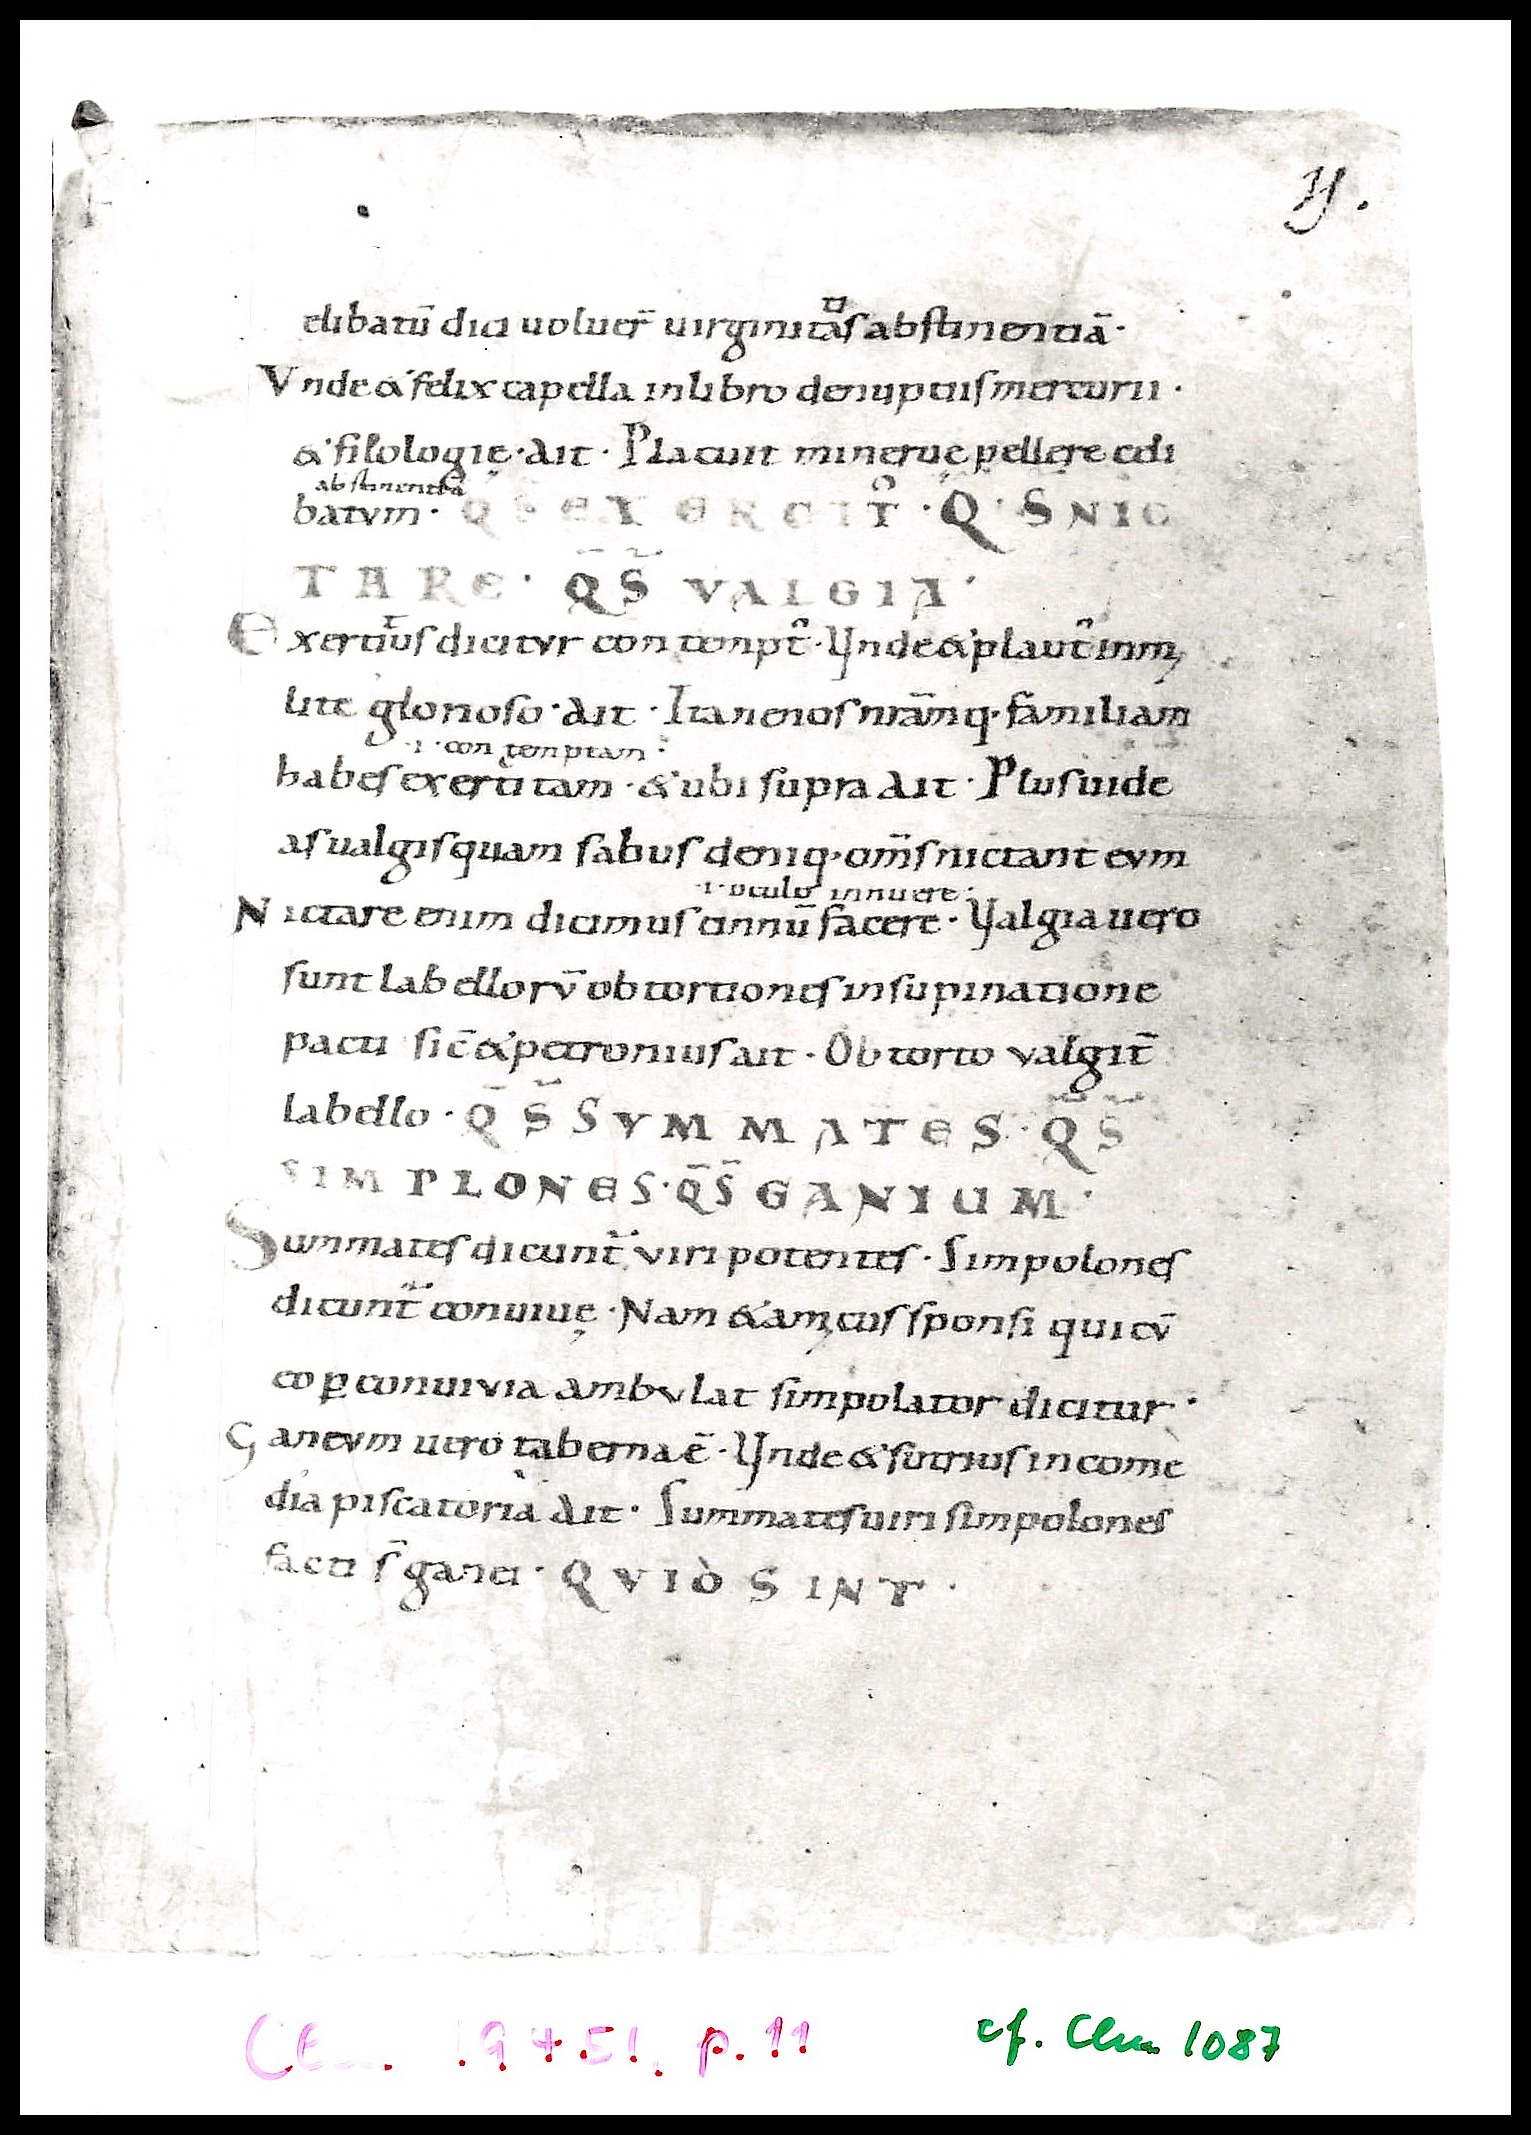 y.
elibatū dici voluer̄ virginitas abstinentiā ·
Vnde & felix capella in libro de nuptiis mercurii ·
& filologię · Ait · Placuit minerue pellere celi
abstinentia
batum · Q̄ S̄ EXERCIT̉ · Q · S NIC
TARE · Q̄S̄ VALGIA ·
Exertius dicitur contempt̉ · Vnde & plaut̉ in mi
lite glorioso · Ait · Itane nos nr̄am q · familiam
· i · contemptam ·
habes exertitam · & ubi supra Ait · Plus uide
as ualgis quam sabus deniq · om̄s nictant eum
· i · oculo innuere ·
Nictare enim dicimus cinnū facere · Valgia uero
sunt labellorū obtortiones in supinatione
pacti sic̄ & petronius ait · Obtorto valgit̄
labello · Q̄ S̄ SVMMATES · Q̄S̄
SIMPLONES · Q̄S̄ GANIUM ·
Summates dicunt̃ viri potentes · Simpolones
dicunt̃ conuiuę · Nam & amicus sponsi qui cū
co ꝑ conuivia ambulat simpolator dicitur ·
Ganeum uero taberna ē · Vnde & sutrius in come
dia piscatoria Ait · Summates uiri simpolones
facti s̄ ganei · QVI Ò SINT ·
Clm 19451, p. 11
cf. Clm 1087